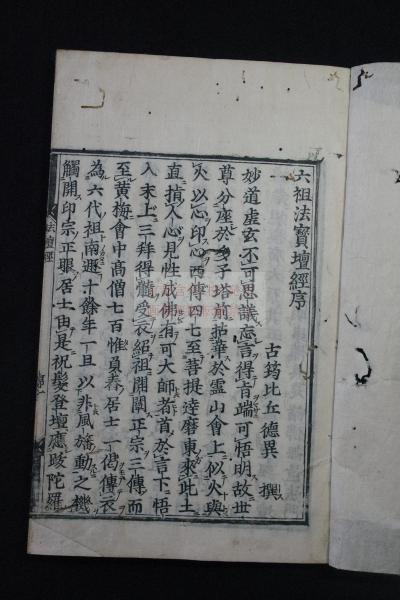 六祖法寶壇經序
古筠比丘 德異 撰
妙道虛玄不可思議忘言得旨端可悟明故世
尊分座於多子塔前拈華於靈山會上似火與
火以心印心西傳四七至菩提達磨東來此土
直指人心見性成佛有可大師者首於言下悟
入末上三拜得髓受衣紹祖開闡正宗三傳而
至黃梅會中高僧七百惟負舂居士一偈傳衣
為六代祖南遯十餘年一旦以非風旛動之機
觸開印宗正眼居士由是祝髮登壇應跋陀羅
法壇經
序